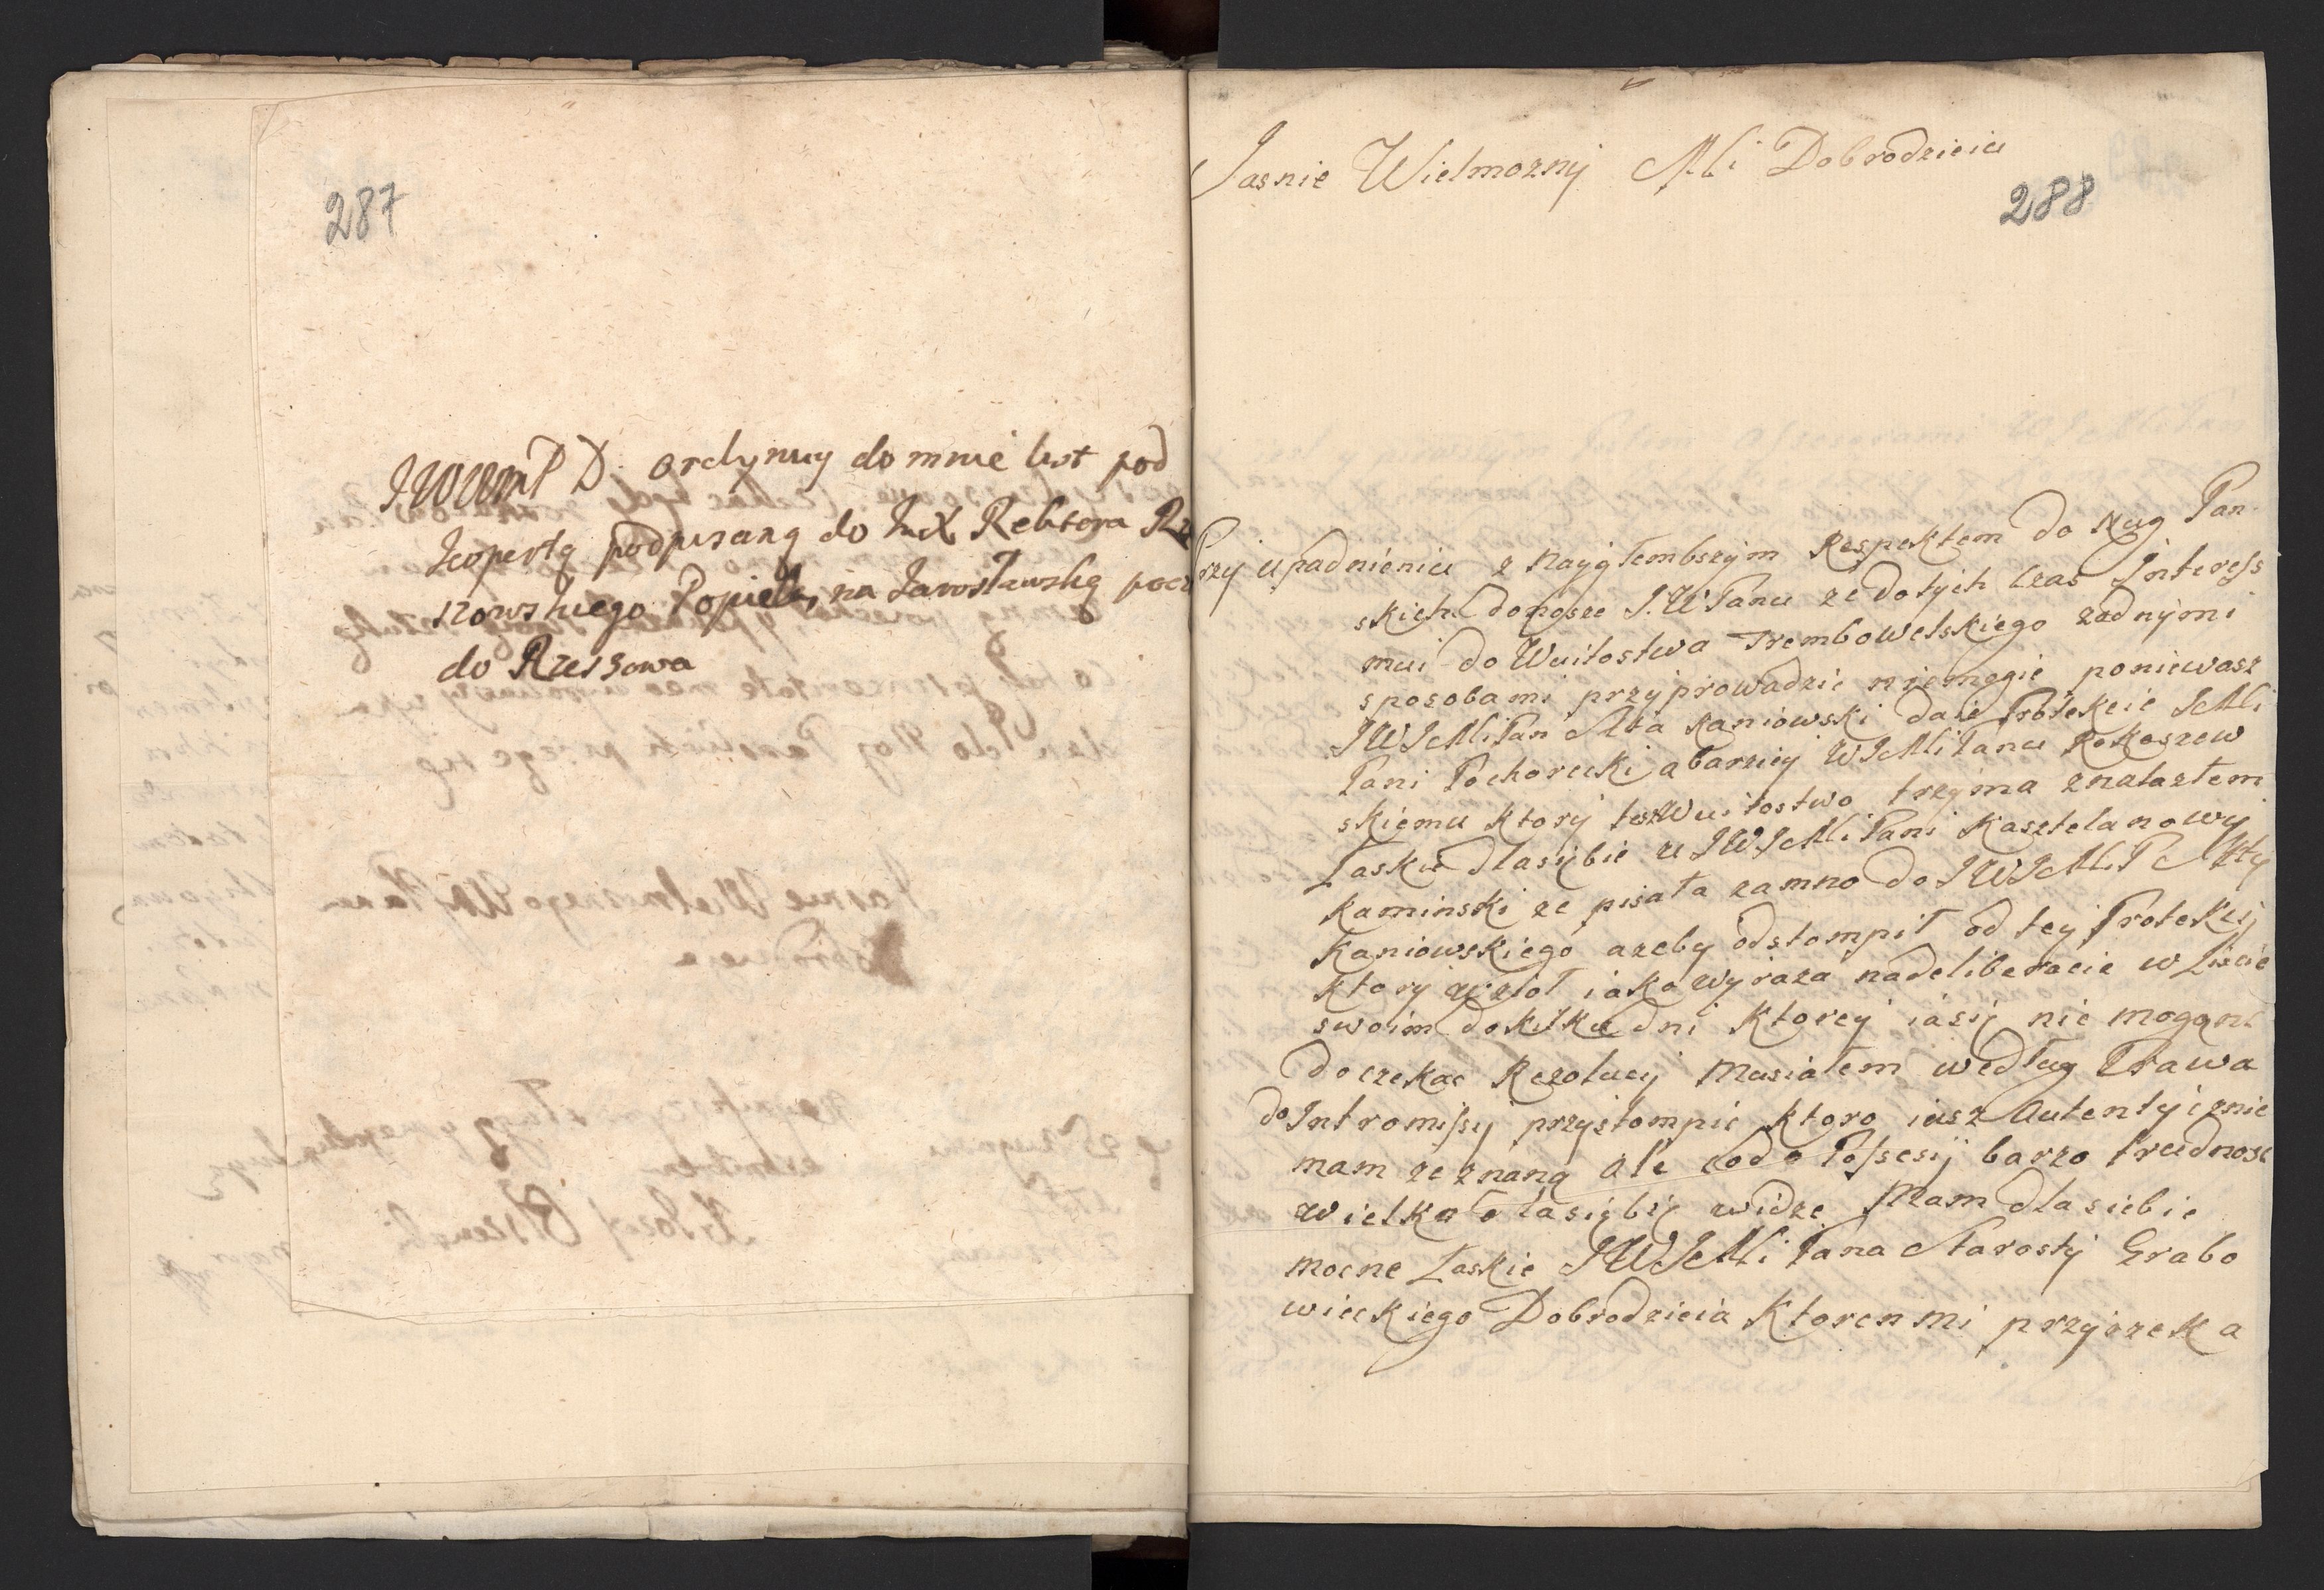 287
JWWmP D. ordynuy do mnie list pod
kopertą podpisaną do ImX Rektora Rze
szowskiego Popiela, na Jarosławską pocz
do Rzeszowa
Jasnie Wielmozny Mći Dobrodzieiu
288
Przy upadnieniu z nayglembszym Respektem do Nug Pan
skich donosze J.W Panu ze dotych czas Interess
mui do Wuitostwa Trembowelskiego zadnymi
sposobami przyprowadzic niemogie poniewasz
JWJeMći Pan Stta Kaniowski daie Protekcie JeMći
Pani Pochorecki a barziey WJeMći Panu Rokoszew
skiemu ktory tesz Wuitostwo trzyma znalazłem
Laske dlasiebie u JWJeMći Pani Kasztelanowy
Kaminski ze pisała zamno do JWJeMći P Stty
Kaniowskiego azeby odstompił od tey Protekcij
ktory wzioł iako wyraza nadeliberacie w Liscie
swoim dokilku dni ktorey iasię nie mogąni
doczekac Rezolucij Musiałem według Prawa
do Intromissij przystompic ktoro iusz Autentycznie
mam zeznaną ale codo Possesij barzo trudnosc
wielką dlasiebie widze Mam dla siebie
mocne Łaskie JWJeMći Pana Starosty Grabo
wieckiego Dobrodzieia Ktoren mi przyrzeka